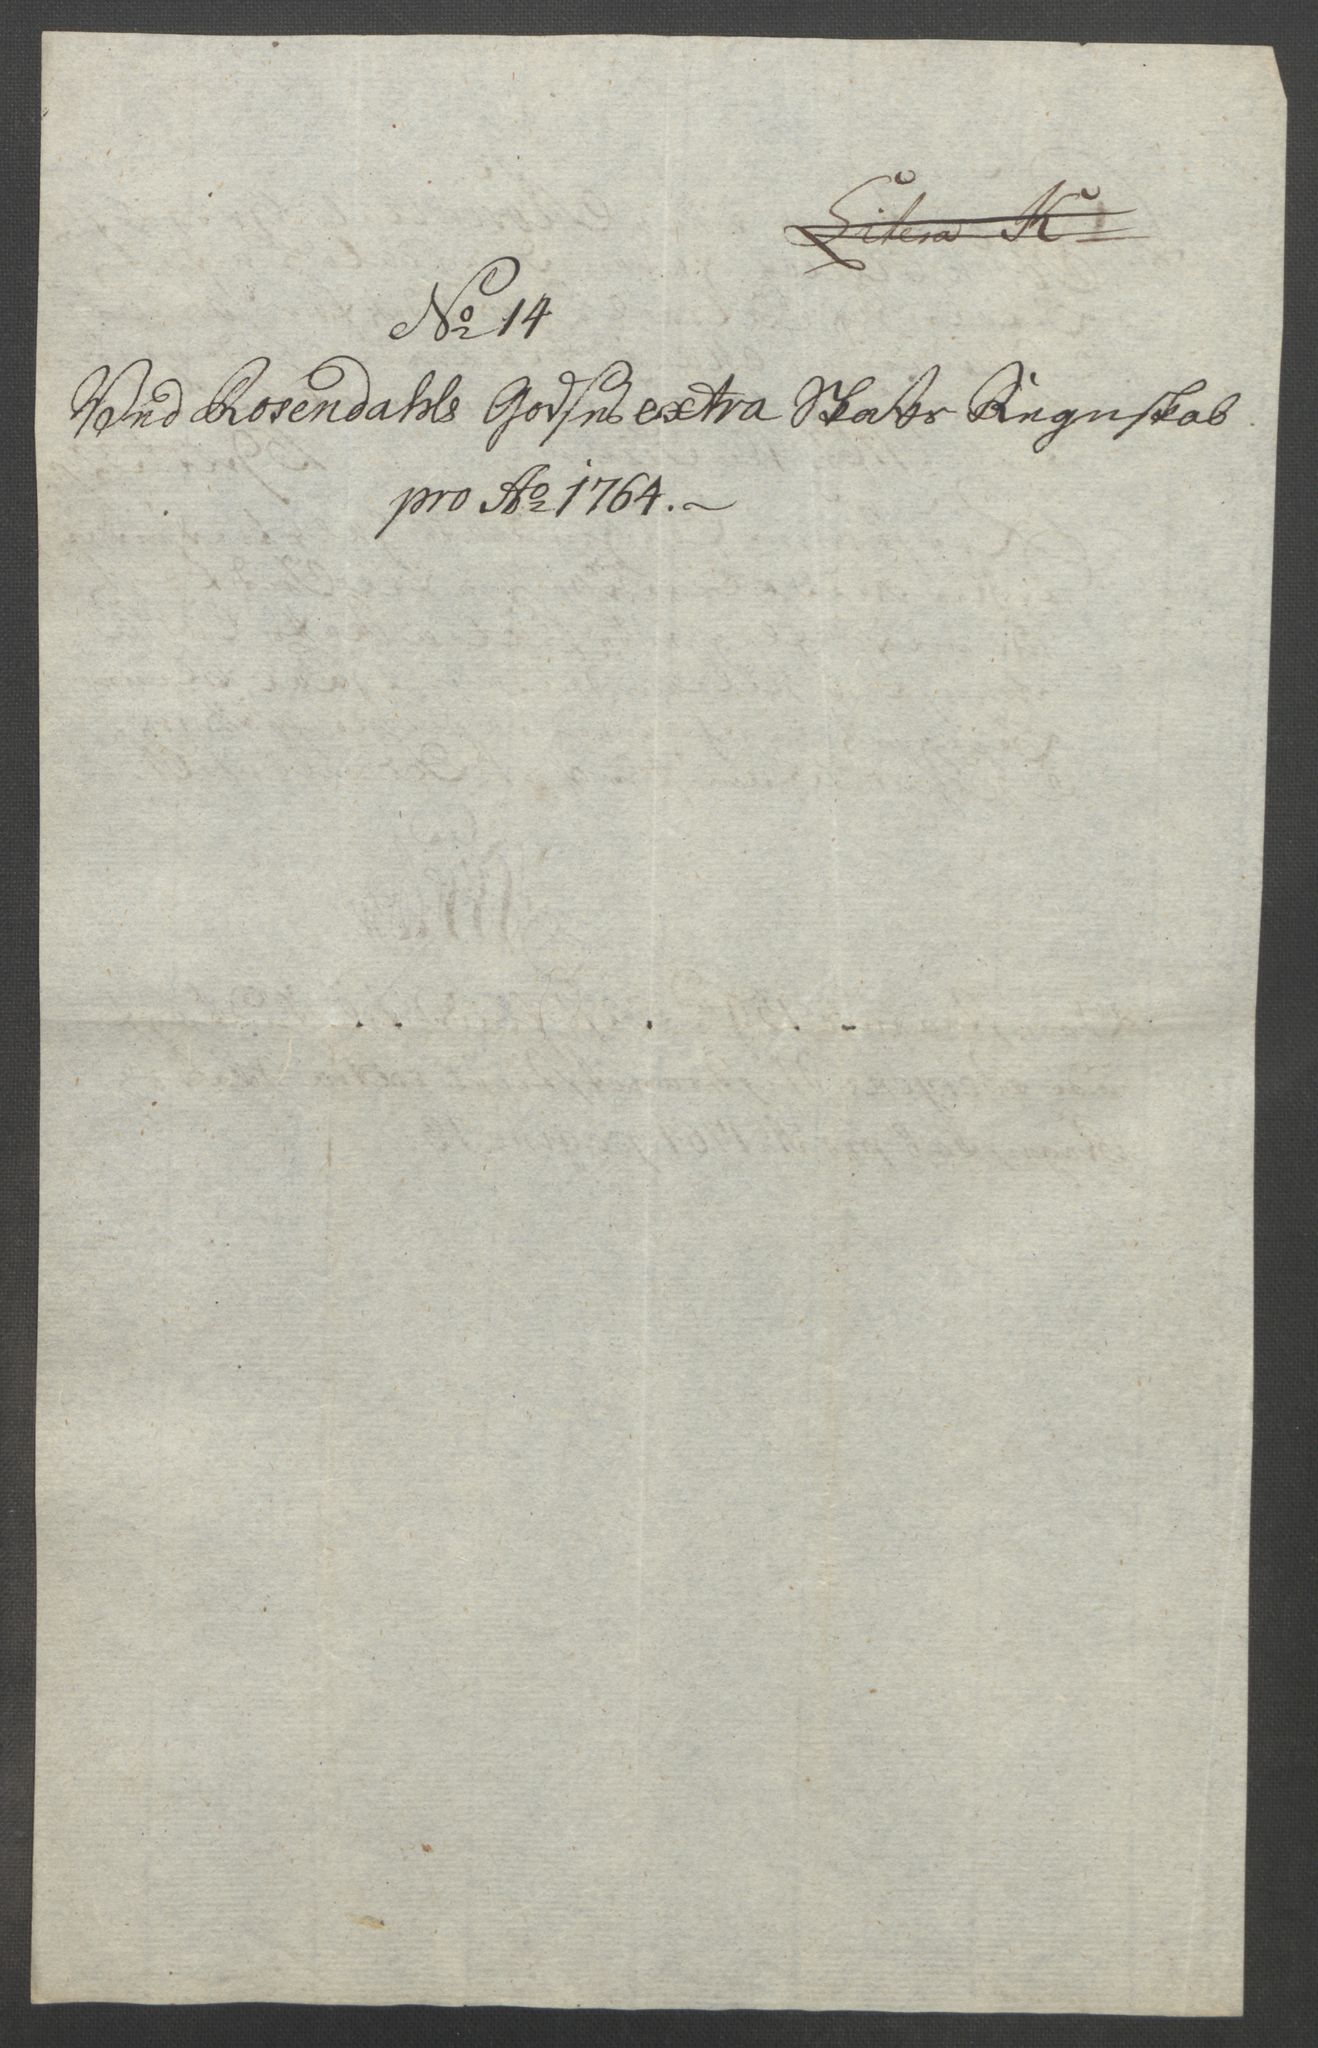 Litera K
No 14
Ved Rosendahls Godses extra Skatts Regnskab
pro Ao 1764.